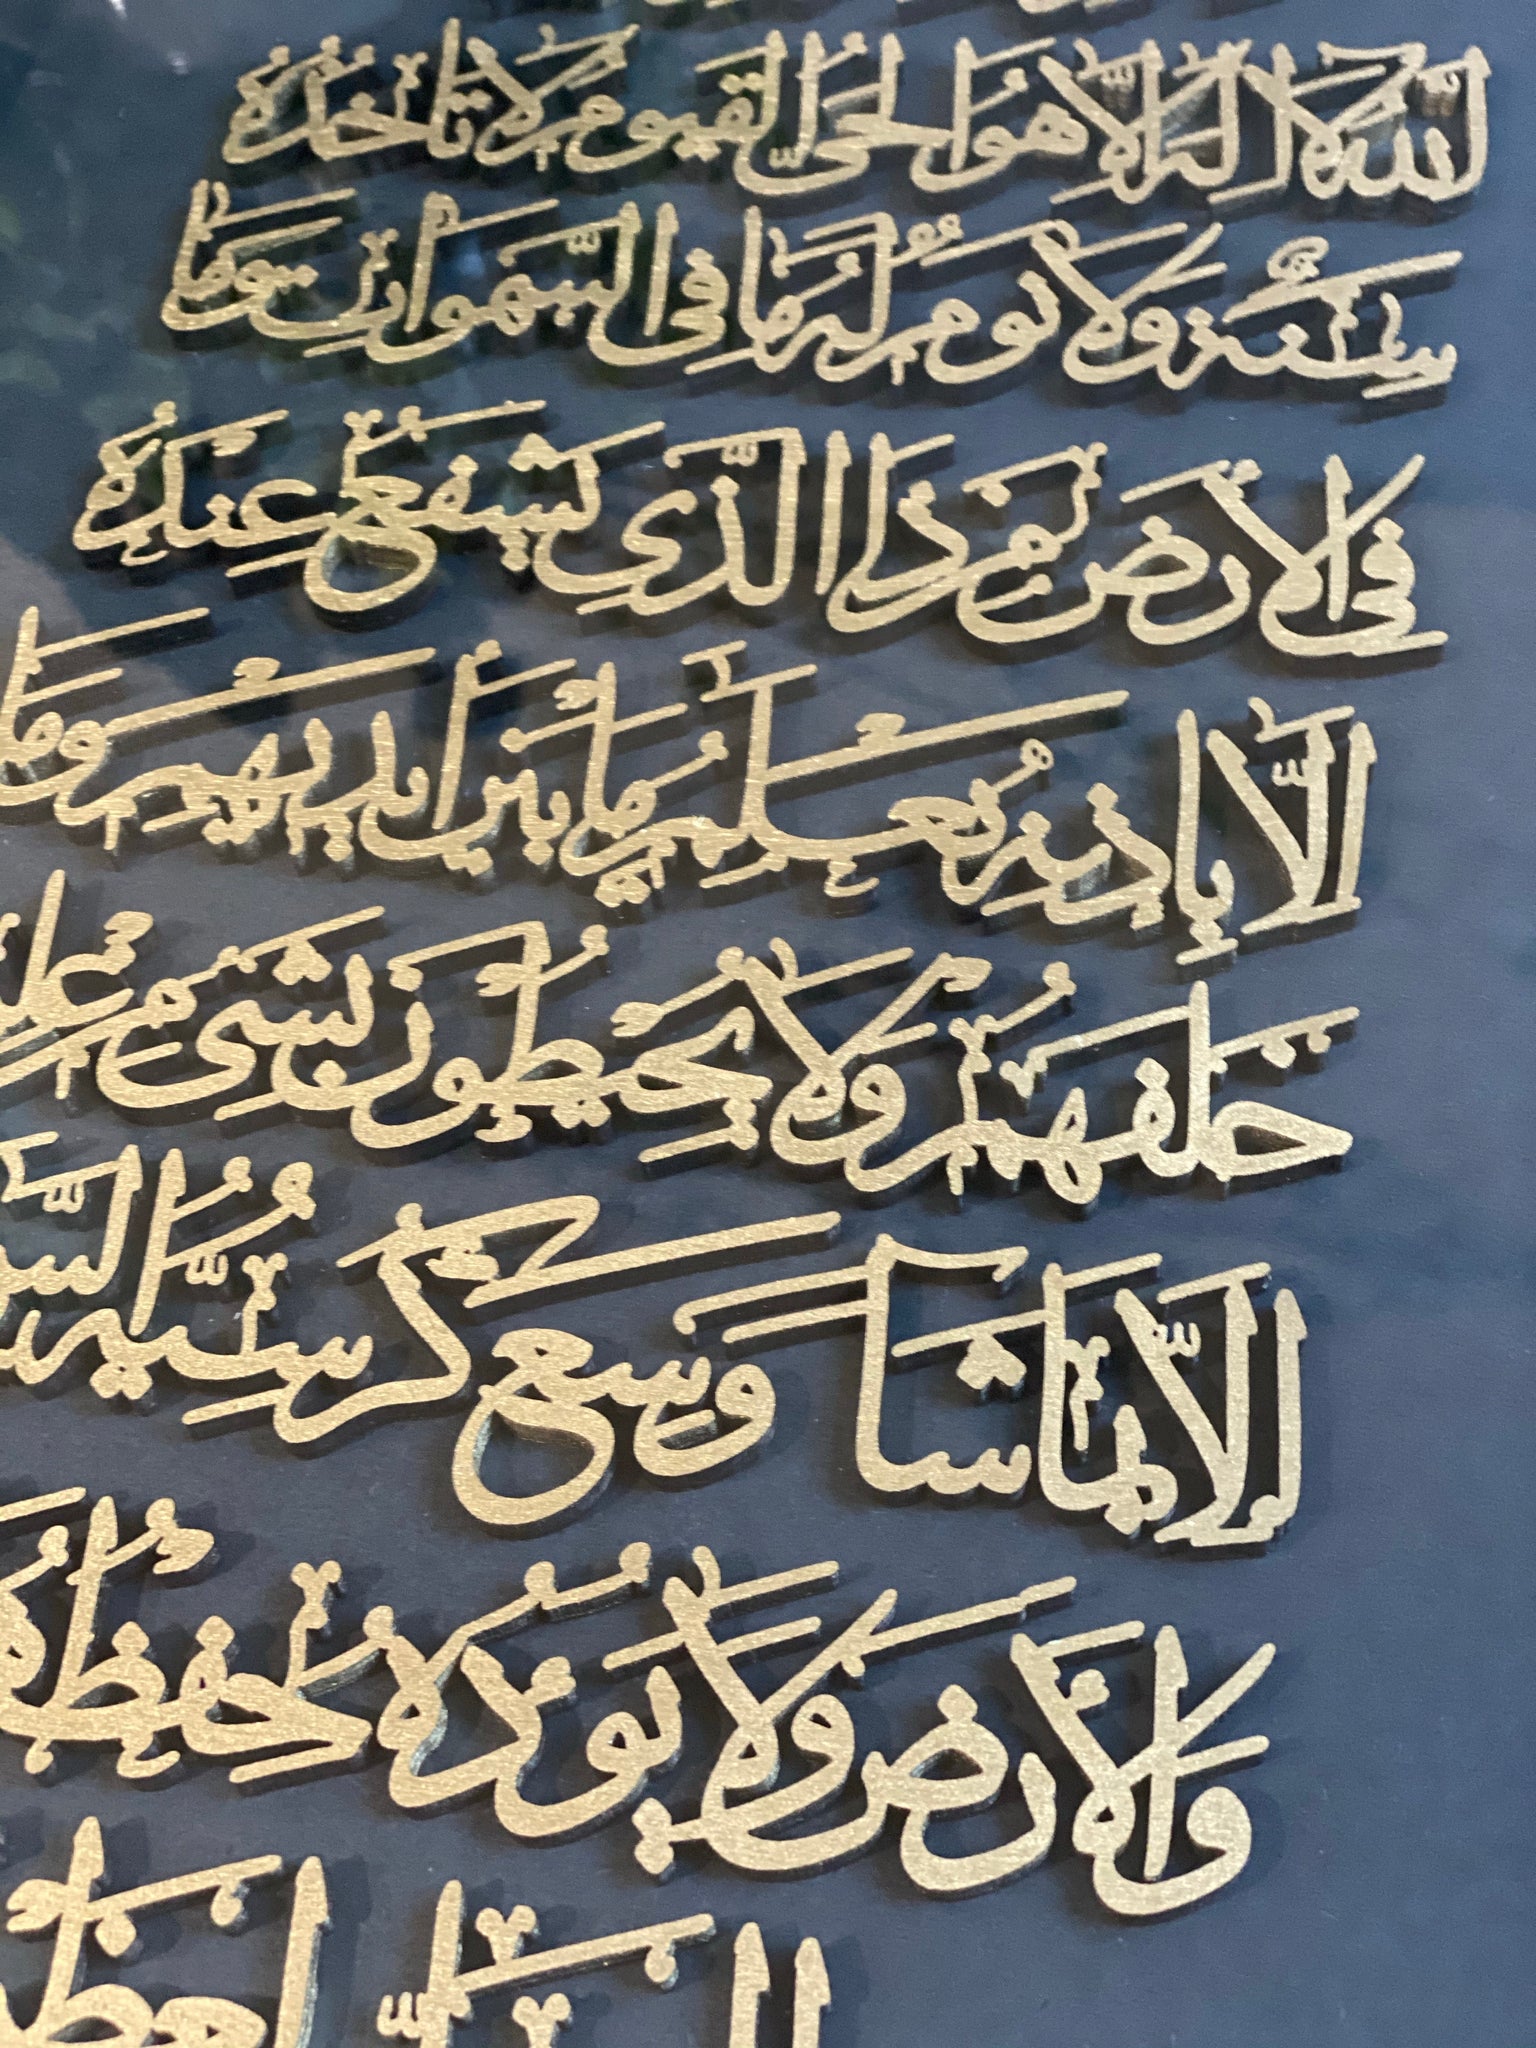 اللَّهُ لَا إِلَٰهَ إِلَّا هُوَ الْحَيُّ الْقَيُّومُ لَا تَأْخُذُهُ
سِنَةٌ وَلَا نَوْمٌ لَهُ مَا فِي السَّمَوَاتِ وَمَا
فِي الْأَرْضِ مَنْ ذَا الَّذِي يَشْفَعُ عِنْدَهُ
إِلَّا بِإِذْنِهِ يَعْلَمُ مَا بَيْنَ أَيْدِيهِمْ وَمَا
خَلْفَهُمْ وَلَا يُحِيطُونَ بِشَيْءٍ مِنْ
إِلَّا بِمَا شَاءَ وَسِعَ كُرْسِيُّهُ
وَالْأَرْضَ وَلَا يَئُودُهُ حِفْظُهُمَا